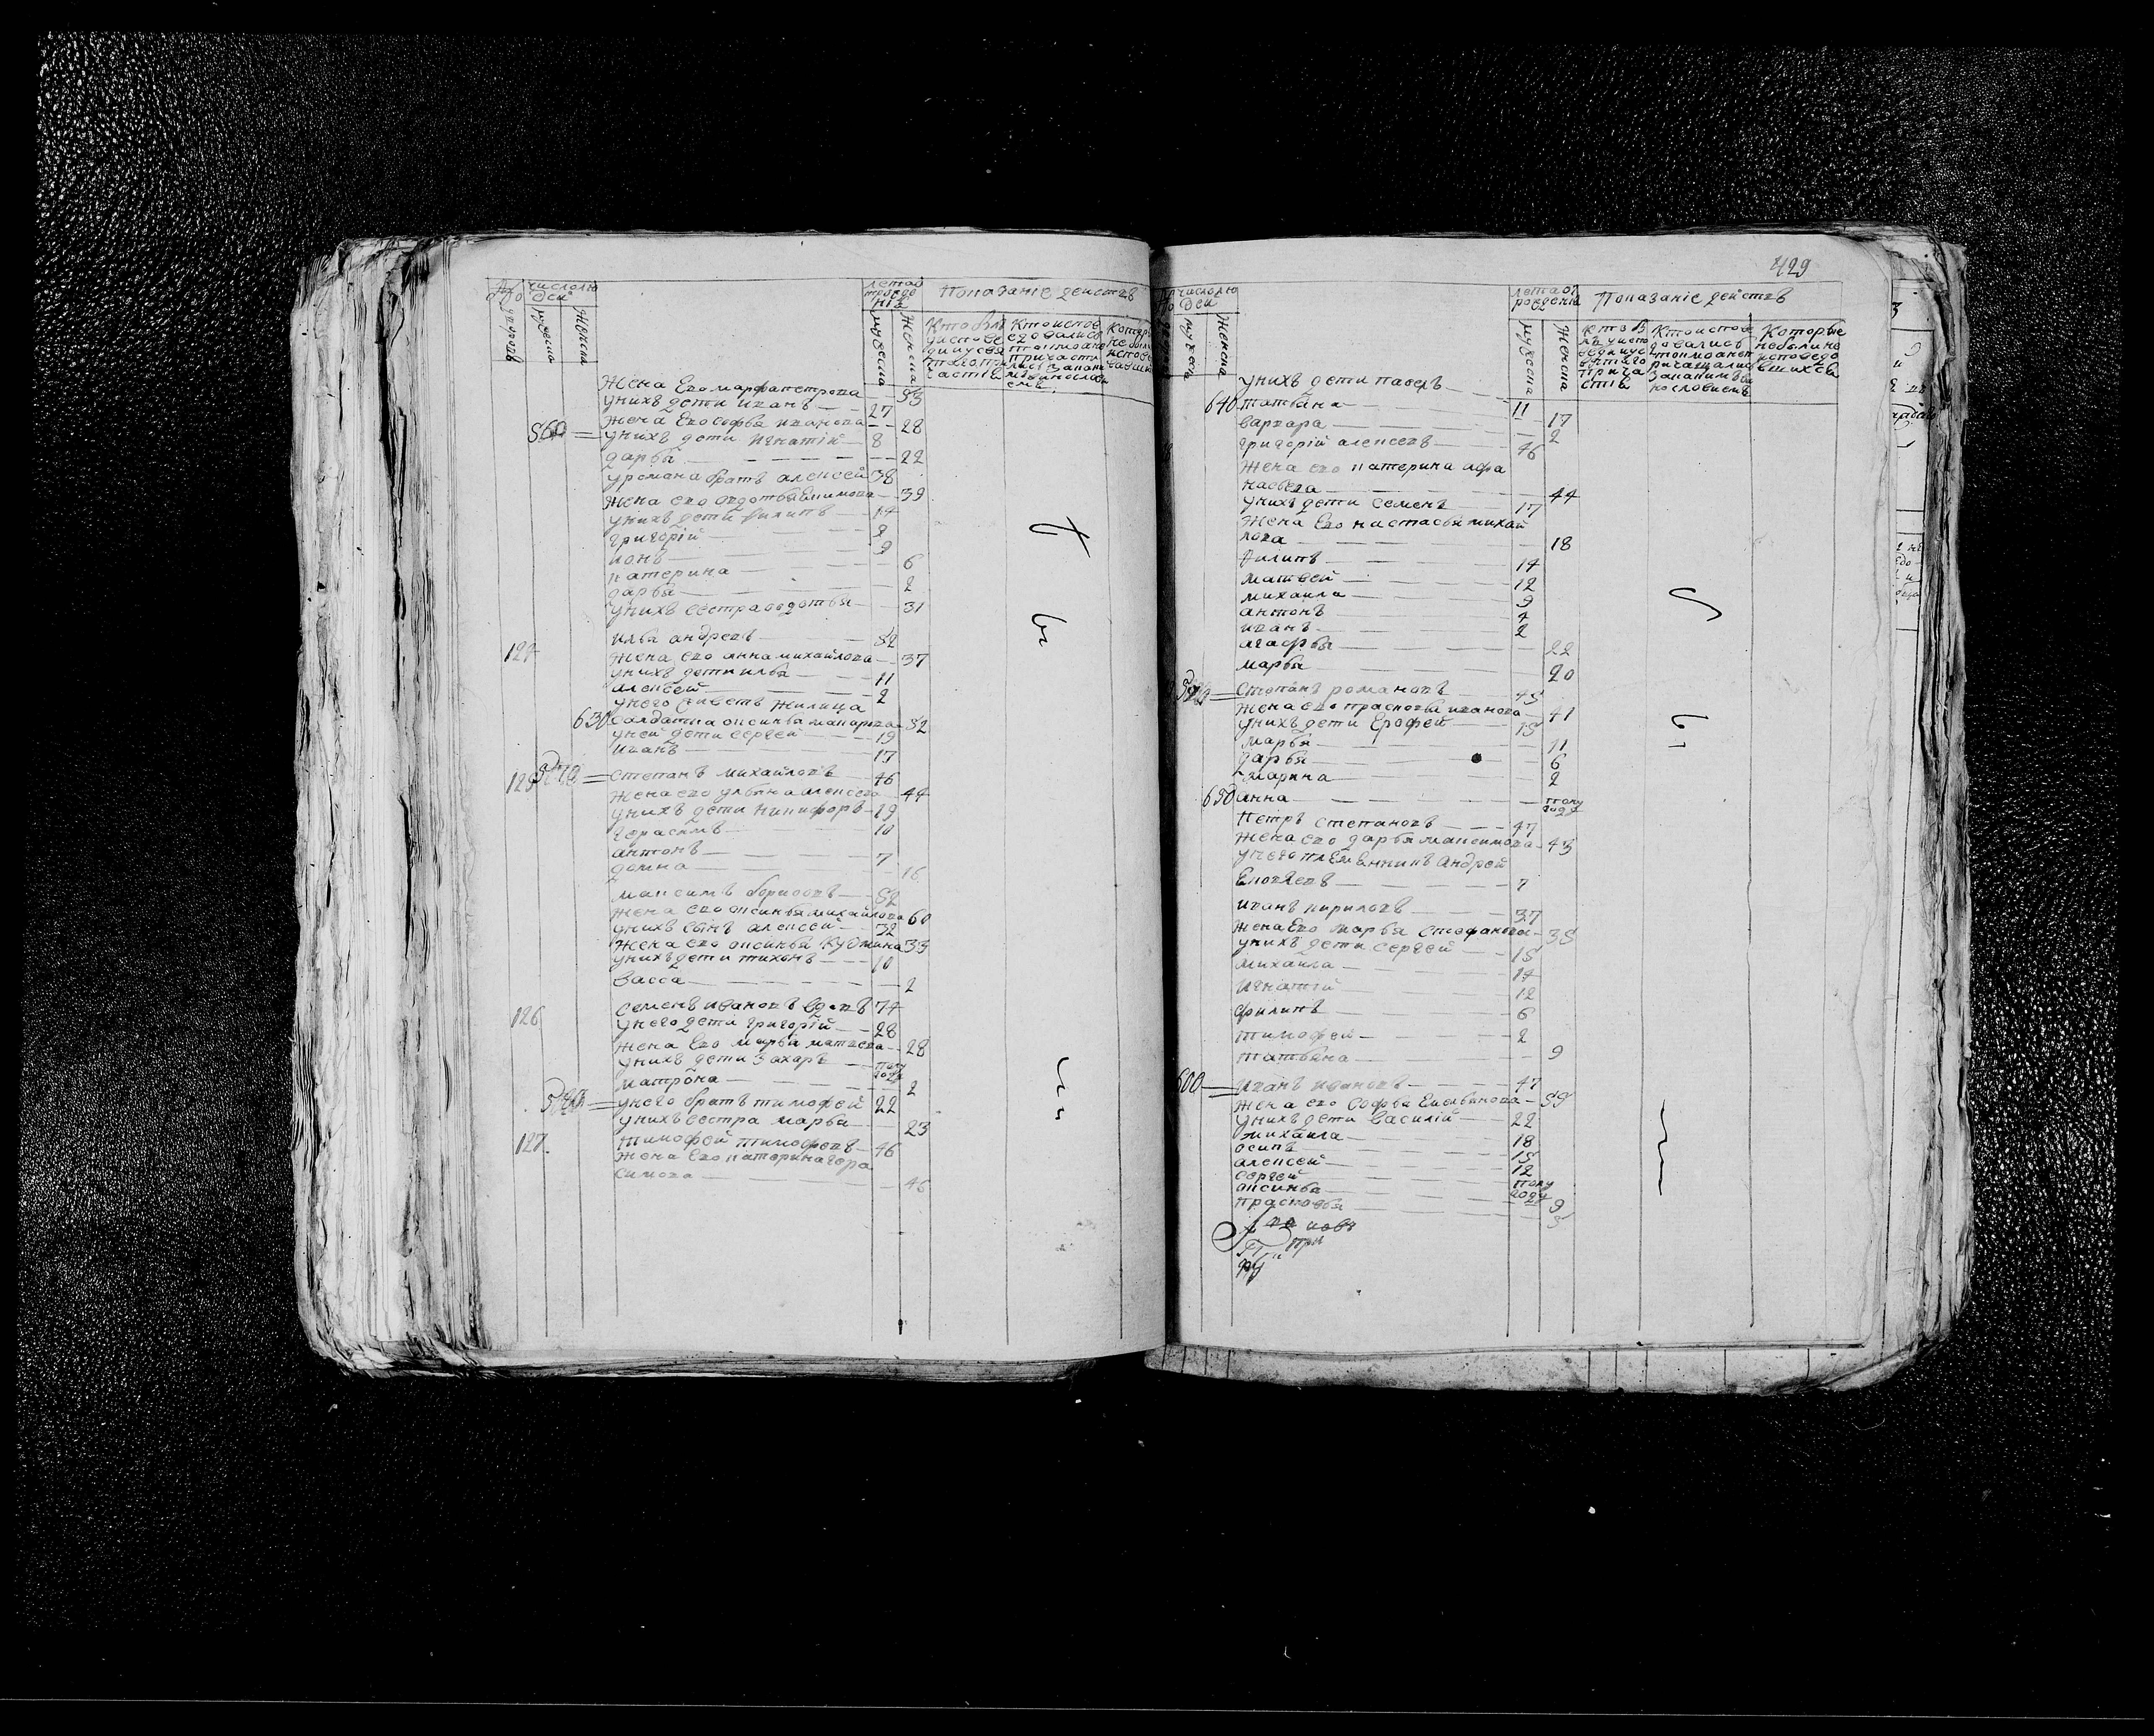 числолю
деи
Показание действъ
Жена Его марфа петрова — 53
У нихъ дети иванъ — 27
Жена Его софья иванова — 28
560 = У нихъ дети Игнатий — 8
дарья — 22
У романа братъ алексей 38
Жена его авдотья Екимова — 39
У нихъ дети Филипъ — 14
Григорий — 8
9
катерина — 6
дарья — 2
У нихъ сестра авдотья — 31
Илья андревъ — 52
124 Жена его анна михайлова — 37
У нихъ дети илья — 11
алексей — 2
У него живетъ жилица
630 солдатка аксинья макарова — 52
У ней дети сергей — 19
Иванъ — 17
125 = степанъ михайловъ — 46
Жена его ульяна алексева — 44
У нихъ дети никифоръ — 19
Герасимъ — 10
антонъ — 7
домна — 16
максимъ борисовъ — 52
Жена его аксинья михайлова 60
У нихъ сынъ алексей — 32
Жена его аксинья Кузмина 33
У нихъ дети тихонъ — 10
Васса — 2
126 семенъ ивановъ вдовъ 74
У него дети григорий — 28
Жена Его марья матвева — 28
У нихъ дети Захаръ — полу году
матрона — 2
= У него братъ тимофей 22
У нихъ сестра марья — 23
127 тимофей тимофевъ — 46
Жена Его катерина гера
симова — 46
429
числолю
деи
лета от
рождения
Показание действъ
У нихъ дети павелъ — 11
640 татьяна — 17
варвара — 2
григорий алексевъ — 46
Жена его катерина афа
насьева — 44
У нихъ дети семенъ — 17
Жена Его настасья михай
лова — 18
Филипъ — 14
матвей — 12
михаила — 9
антонъ — 4
иванъ — 2
агафья — 22
марья — 20
= Степанъ романовъ — 45
Жена его прасковья иванова — 41
У нихъ дети Ерофей — 15
марья — 11
дарья — 6
марина — 2
650 анна — полу году
Петръ степановъ — 47
Жена его дарья максимова — 43
У него племянникъ андрей
— 7
иванъ кириловъ — 37
Жена Его марья стефанова — 35
У нихъ дети сергей — 15
михаила — 14
игнатий — 12
филипъ — 6
тимофей — 2
татьяна — 9
600 Иванъ ивановъ — 47
Жена его софья Емельянова — 59
У нихъ дети василий — 22
михаила — 18
осипъ — 15
алексей — 12
сергей — полу году
аксинья — 9
прасковья — 5